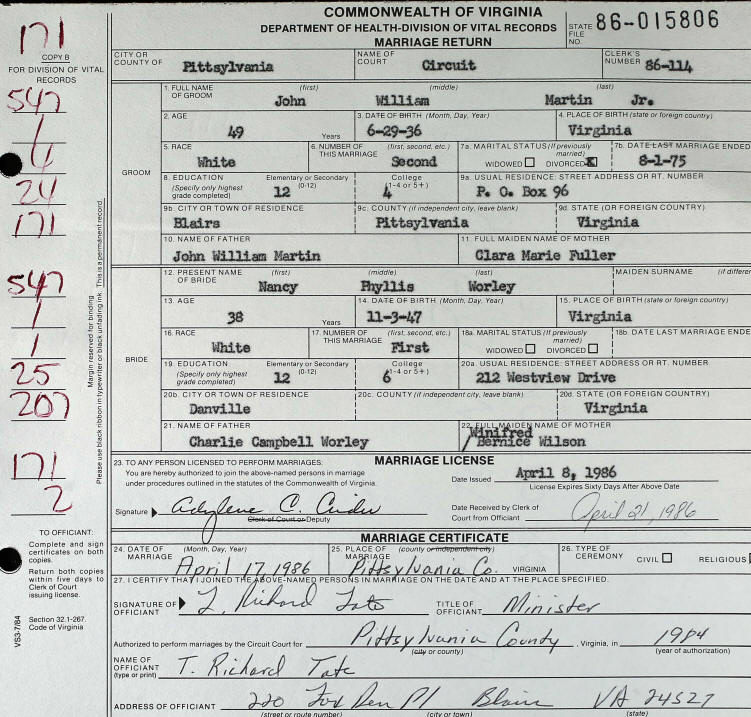 COMMONWEALTH OF VIRGINIA
DEPARTMENT OF HEALTH-DIVISION OF VITAL RECORDS
MARRIAGE RETURN
STATE FILE NO. 86-015806
171
COPY B
FOR DIVISION OF VITAL RECORDS
CITY OR COUNTY OF Pittsylvania
NAME OF COURT Circuit
CLERK'S NUMBER 86-114
547
1
4
24
171
GROOM
1. FULL NAME OF GROOM (first) John (middle) William (last) Martin Jr.
2. AGE 49 Years
3. DATE OF BIRTH (Month, Day, Year) 6-29-36
4. PLACE OF BIRTH (state or foreign country) Virginia
5. RACE White
6. NUMBER OF THIS MARRIAGE (first, second, etc.) Second
7a. MARITAL STATUS (If previously married) WIDOWED DIVORCED X
7b. DATE LAST MARRIAGE ENDED 8-1-75
8. EDUCATION (Specify only highest grade completed) Elementary or Secondary (0-12) 12 College (1-4 or 5+) 4
9a. USUAL RESIDENCE: STREET ADDRESS OR RT. NUMBER P. O. Box 96
9b. CITY OR TOWN OF RESIDENCE Blairs
9c. COUNTY (if independent city, leave blank) Pittsylvania
9d. STATE (OR FOREIGN COUNTRY) Virginia
10. NAME OF FATHER John William Martin
11. FULL MAIDEN NAME OF MOTHER Clara Marie Fuller
547
1
1
25
207
BRIDE
12. PRESENT NAME OF BRIDE (first) Nancy (middle) Phyllis (last) Worley
MAIDEN SURNAME (if differe
13. AGE 38 Years
14. DATE OF BIRTH (Month, Day, Year) 11-3-47
15. PLACE OF BIRTH (state or foreign country) Virginia
16. RACE White
17. NUMBER OF THIS MARRIAGE (first, second, etc.) First
18a. MARITAL STATUS (If previously married) WIDOWED DIVORCED
18b. DATE LAST MARRIAGE ENDE
19. EDUCATION (Specify only highest grade completed) Elementary or Secondary (0-12) 12 College (1-4 or 5+) 6
20a. USUAL RESIDENCE: STREET ADDRESS OR RT. NUMBER 212 Westview Drive
20b. CITY OR TOWN OF RESIDENCE Danville
20c. COUNTY (if independent city, leave blank)
20d. STATE (OR FOREIGN COUNTRY) Virginia
21. NAME OF FATHER Charlie Campbell Worley
22. FULL MAIDEN NAME OF MOTHER Winifred / Bernice Wilson
Margin reserved for binding
Please use black ribbon in typewriter or black unfading ink. This is a permanent record.
171
2
MARRIAGE LICENSE
23. TO ANY PERSON LICENSED TO PERFORM MARRIAGES:
You are hereby authorized to join the above-named persons in marriage
under procedures outlined in the statutes of the Commonwealth of Virginia.
Date Issued April 8, 1986
License Expires Sixty Days After Above Date
Signature C.
Clerk of Court or Deputy
Date Received by Clerk of Court from Official April 21, 1986
TO OFFICIANT:
Complete and sign certificates on both copies.
Return both copies within five days to Clerk of Court issuing license.
Section 32.1-267. Code of Virginia
VS3-7/84
MARRIAGE CERTIFICATE
24. DATE OF MARRIAGE (Month, Day, Year) April 17, 1986
25. PLACE OF MARRIAGE (county or independent city) Pittsylvania Co. VIRGINIA
26. TYPE OF CEREMONY CIVIL RELIGIOUS
27. I CERTIFY THAT I JOINED THE ABOVE-NAMED PERSONS IN MARRIAGE ON THE DATE AND AT THE PLACE SPECIFIED.
SIGNATURE OF OFFICIANT T. Richard Tate
TITLE OF OFFICIANT Minister
Authorized to perform marriages by the Circuit Court for Pittsylvania County, Virginia, in 1984
(city or county) (year of authorization)
NAME OF OFFICIANT (type or print) T. Richard Tate
ADDRESS OF OFFICIANT 220 Fox Den Pl Blairs VA 24527
(street or route number) (city or town) (state)